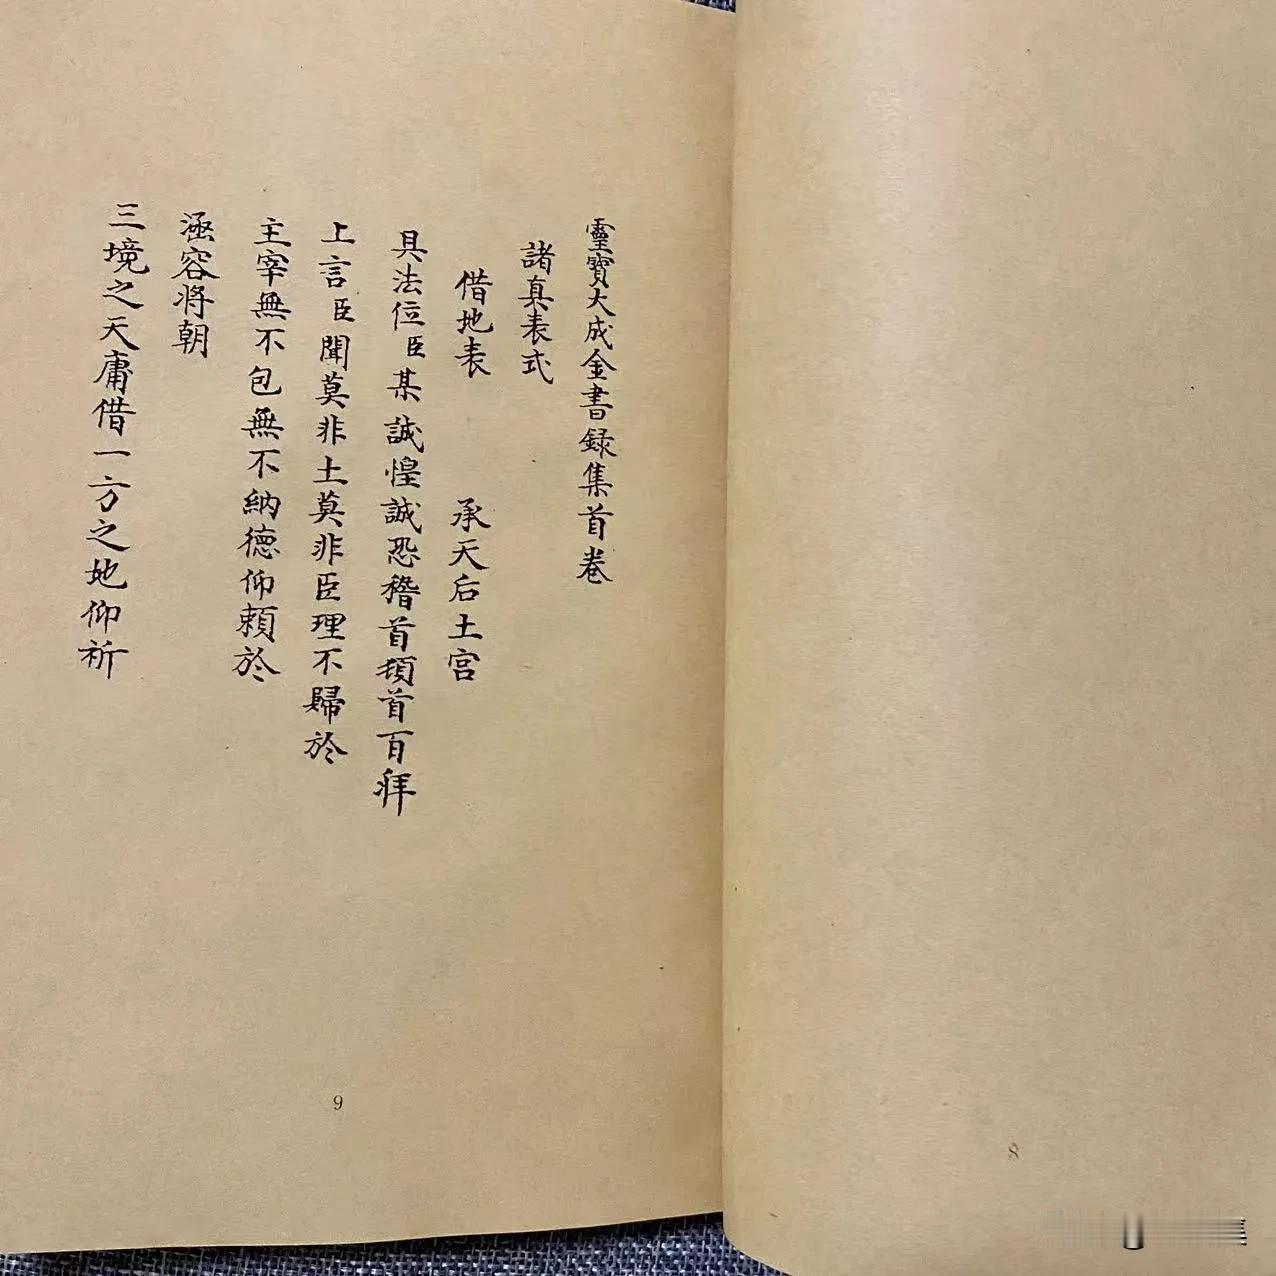 靈寶大成金書録集首卷
諸真表式
借地表 承天后土宮
具法位臣某誠惶誠恐稽首頓首百拜
上言臣聞莫非土莫非臣理不歸於
主宰無不包無不納德仰賴於
涵容將朝
三境之天庸借一方之地仰祈
9
8